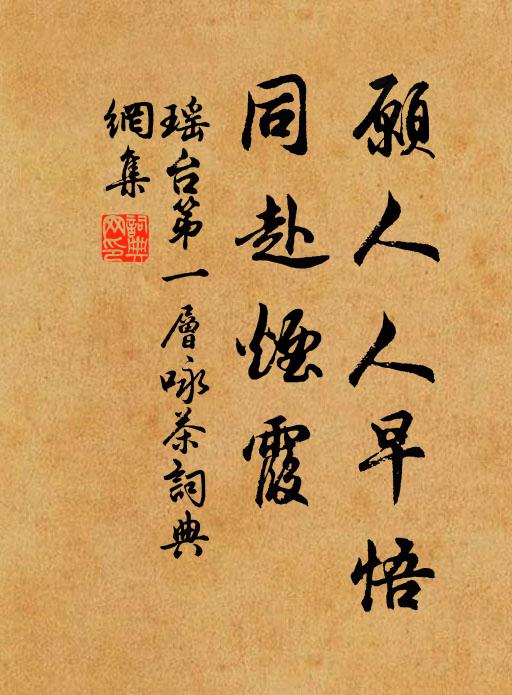 願人人早悟
同赴煙霞
瑶台第一層咏茶詞典
網集
詞典網印